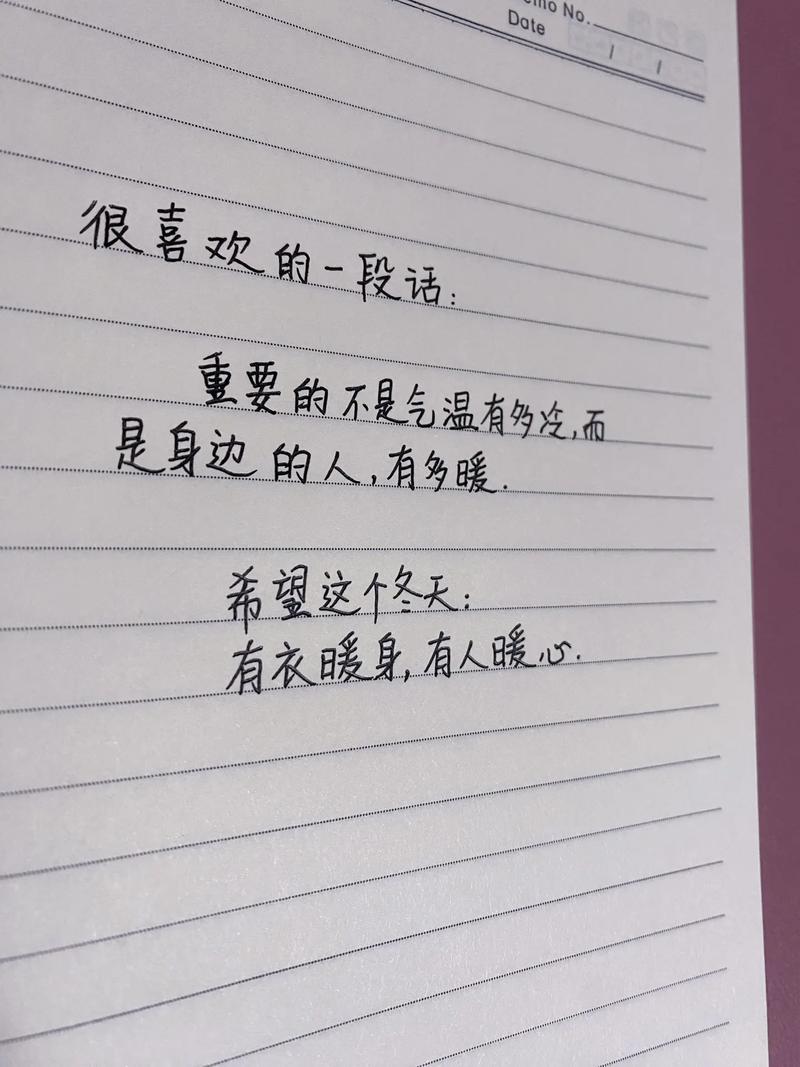 Memo No.
Date / /
很喜欢的一段话:
重要的不是气温有多冷,而
是身边的人,有多暖.
希望这个冬天:
有衣暖身,有人暖心.